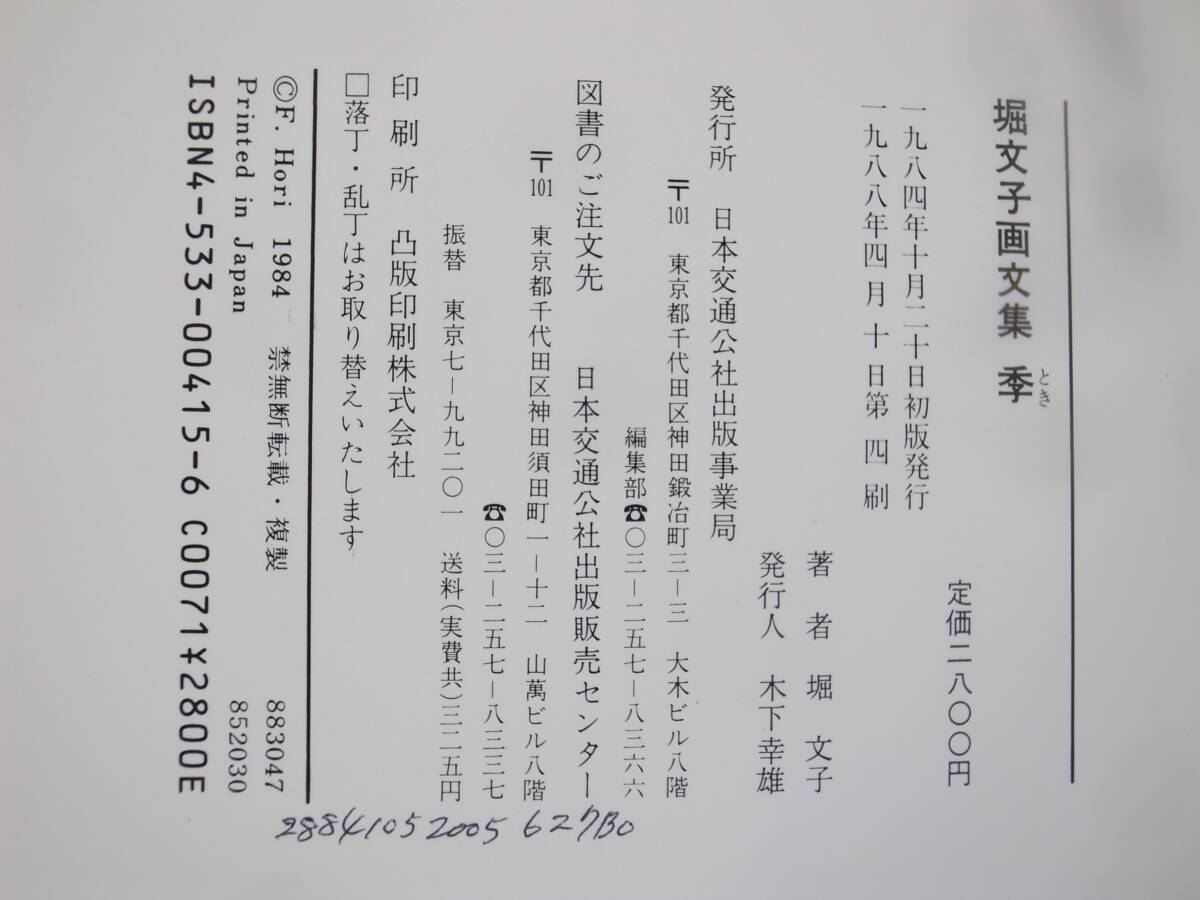 堀文子画文集 季
とき
定価二八〇〇円
一九八四年十月二十日初版発行
一九八八年四月十日第四刷
著者 堀文子
発行人 木下幸雄
発行所 日本交通公社出版事業局
〒101 東京都千代田区神田鍛冶町三-三 大木ビル八階
編集部☎〇三-二五七-八三六六
図書のご注文先 日本交通公社出版販売センター
〒101 東京都千代田区神田須田町一-十二 山萬ビル八階
☎〇三-二五七-八三三七
振替 東京七-九九二〇一 送料(実費共)三二五円
印刷所 凸版印刷株式会社
□落丁・乱丁はお取り替えいたします
©F. Hori 1984 禁無断転載・複製 883047
Printed in Japan 852030
ISBN4-533-00415-6 C0071¥2800E
28841052005 627B0